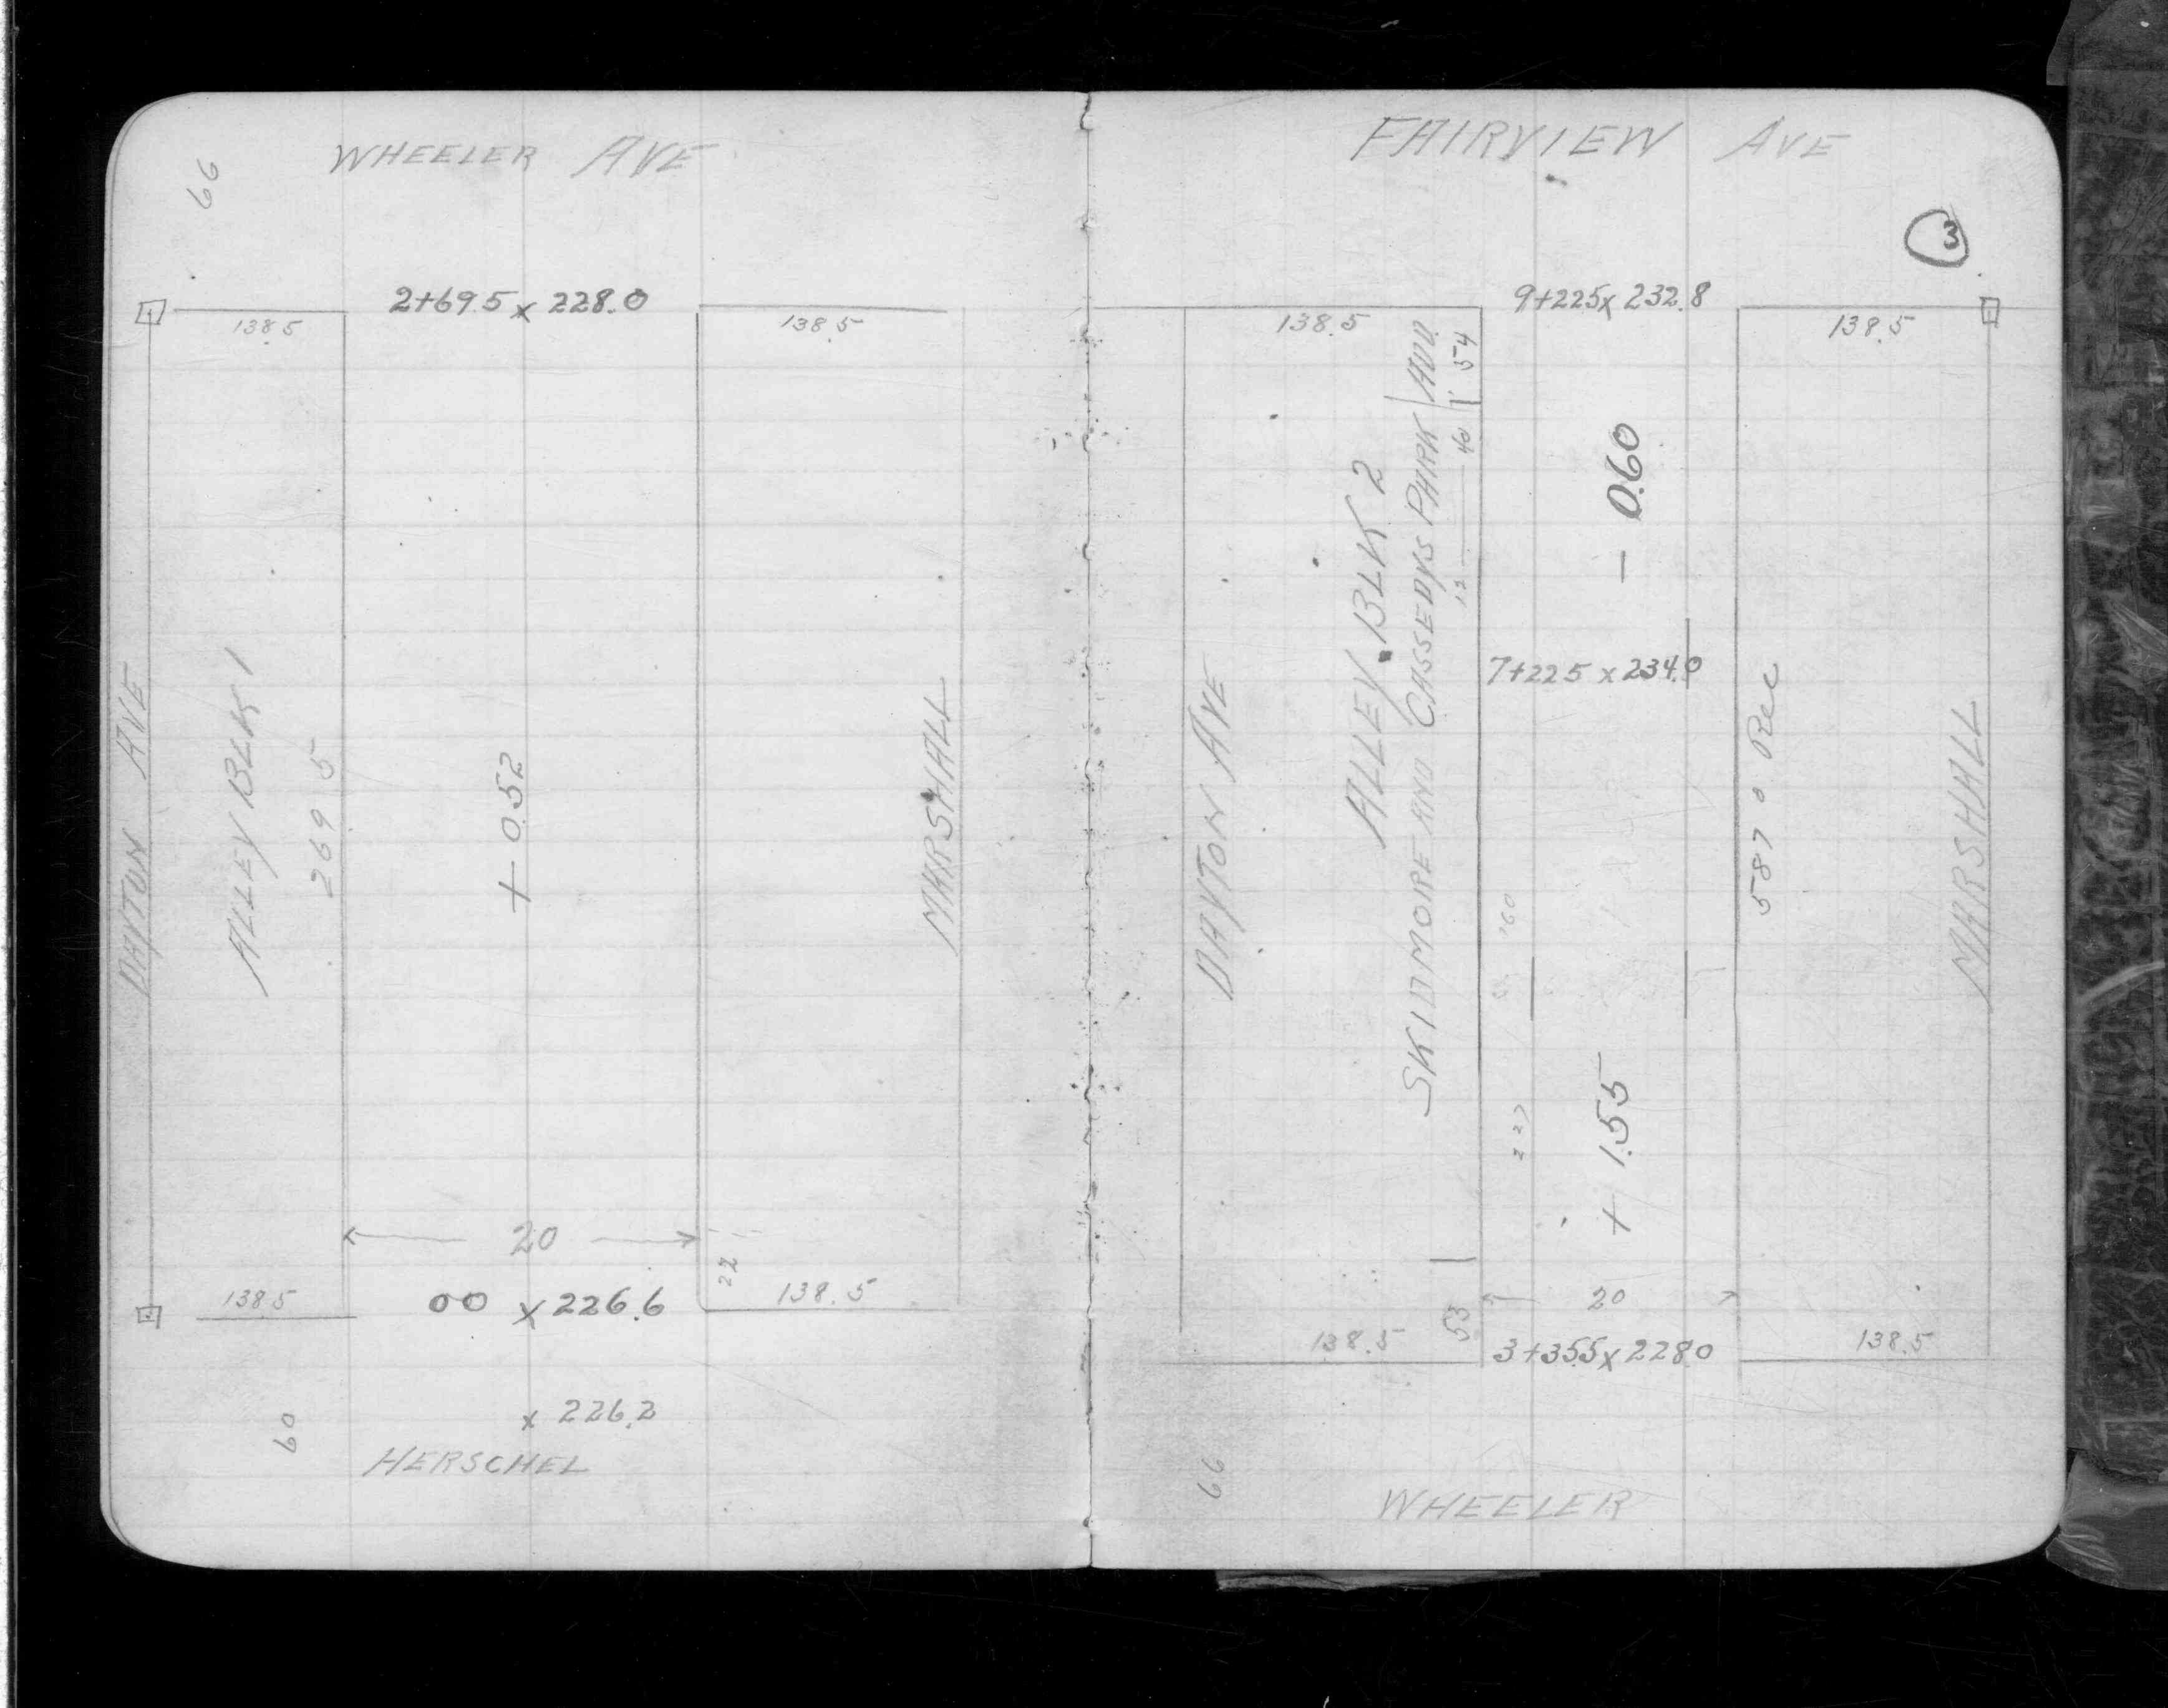 WHEELER AVE
66
2+69.5 x 228.0
138.5
138.5
DAYTON AVE
ALLEY BLK 1
269.5
+ 0.52
MARSHALL
20
22
138.5
00 x 226.6
138.5
x 226.2
60
HERSCHEL
FAIRVIEW AVE
3
9+22.5 x 232.8
138.5
138.5
54
40
12
- 0.60
ALLEY BLK 2
SKIDMORE AND CASSEDYS PARK ADD.
7+22.5 x 234.0
DAYTON AVE
587.0 Rec
MARSHALL
160
227
+ 1.55
20
53
138.5
3+35.5 x 228.0
138.5
66
WHEELER